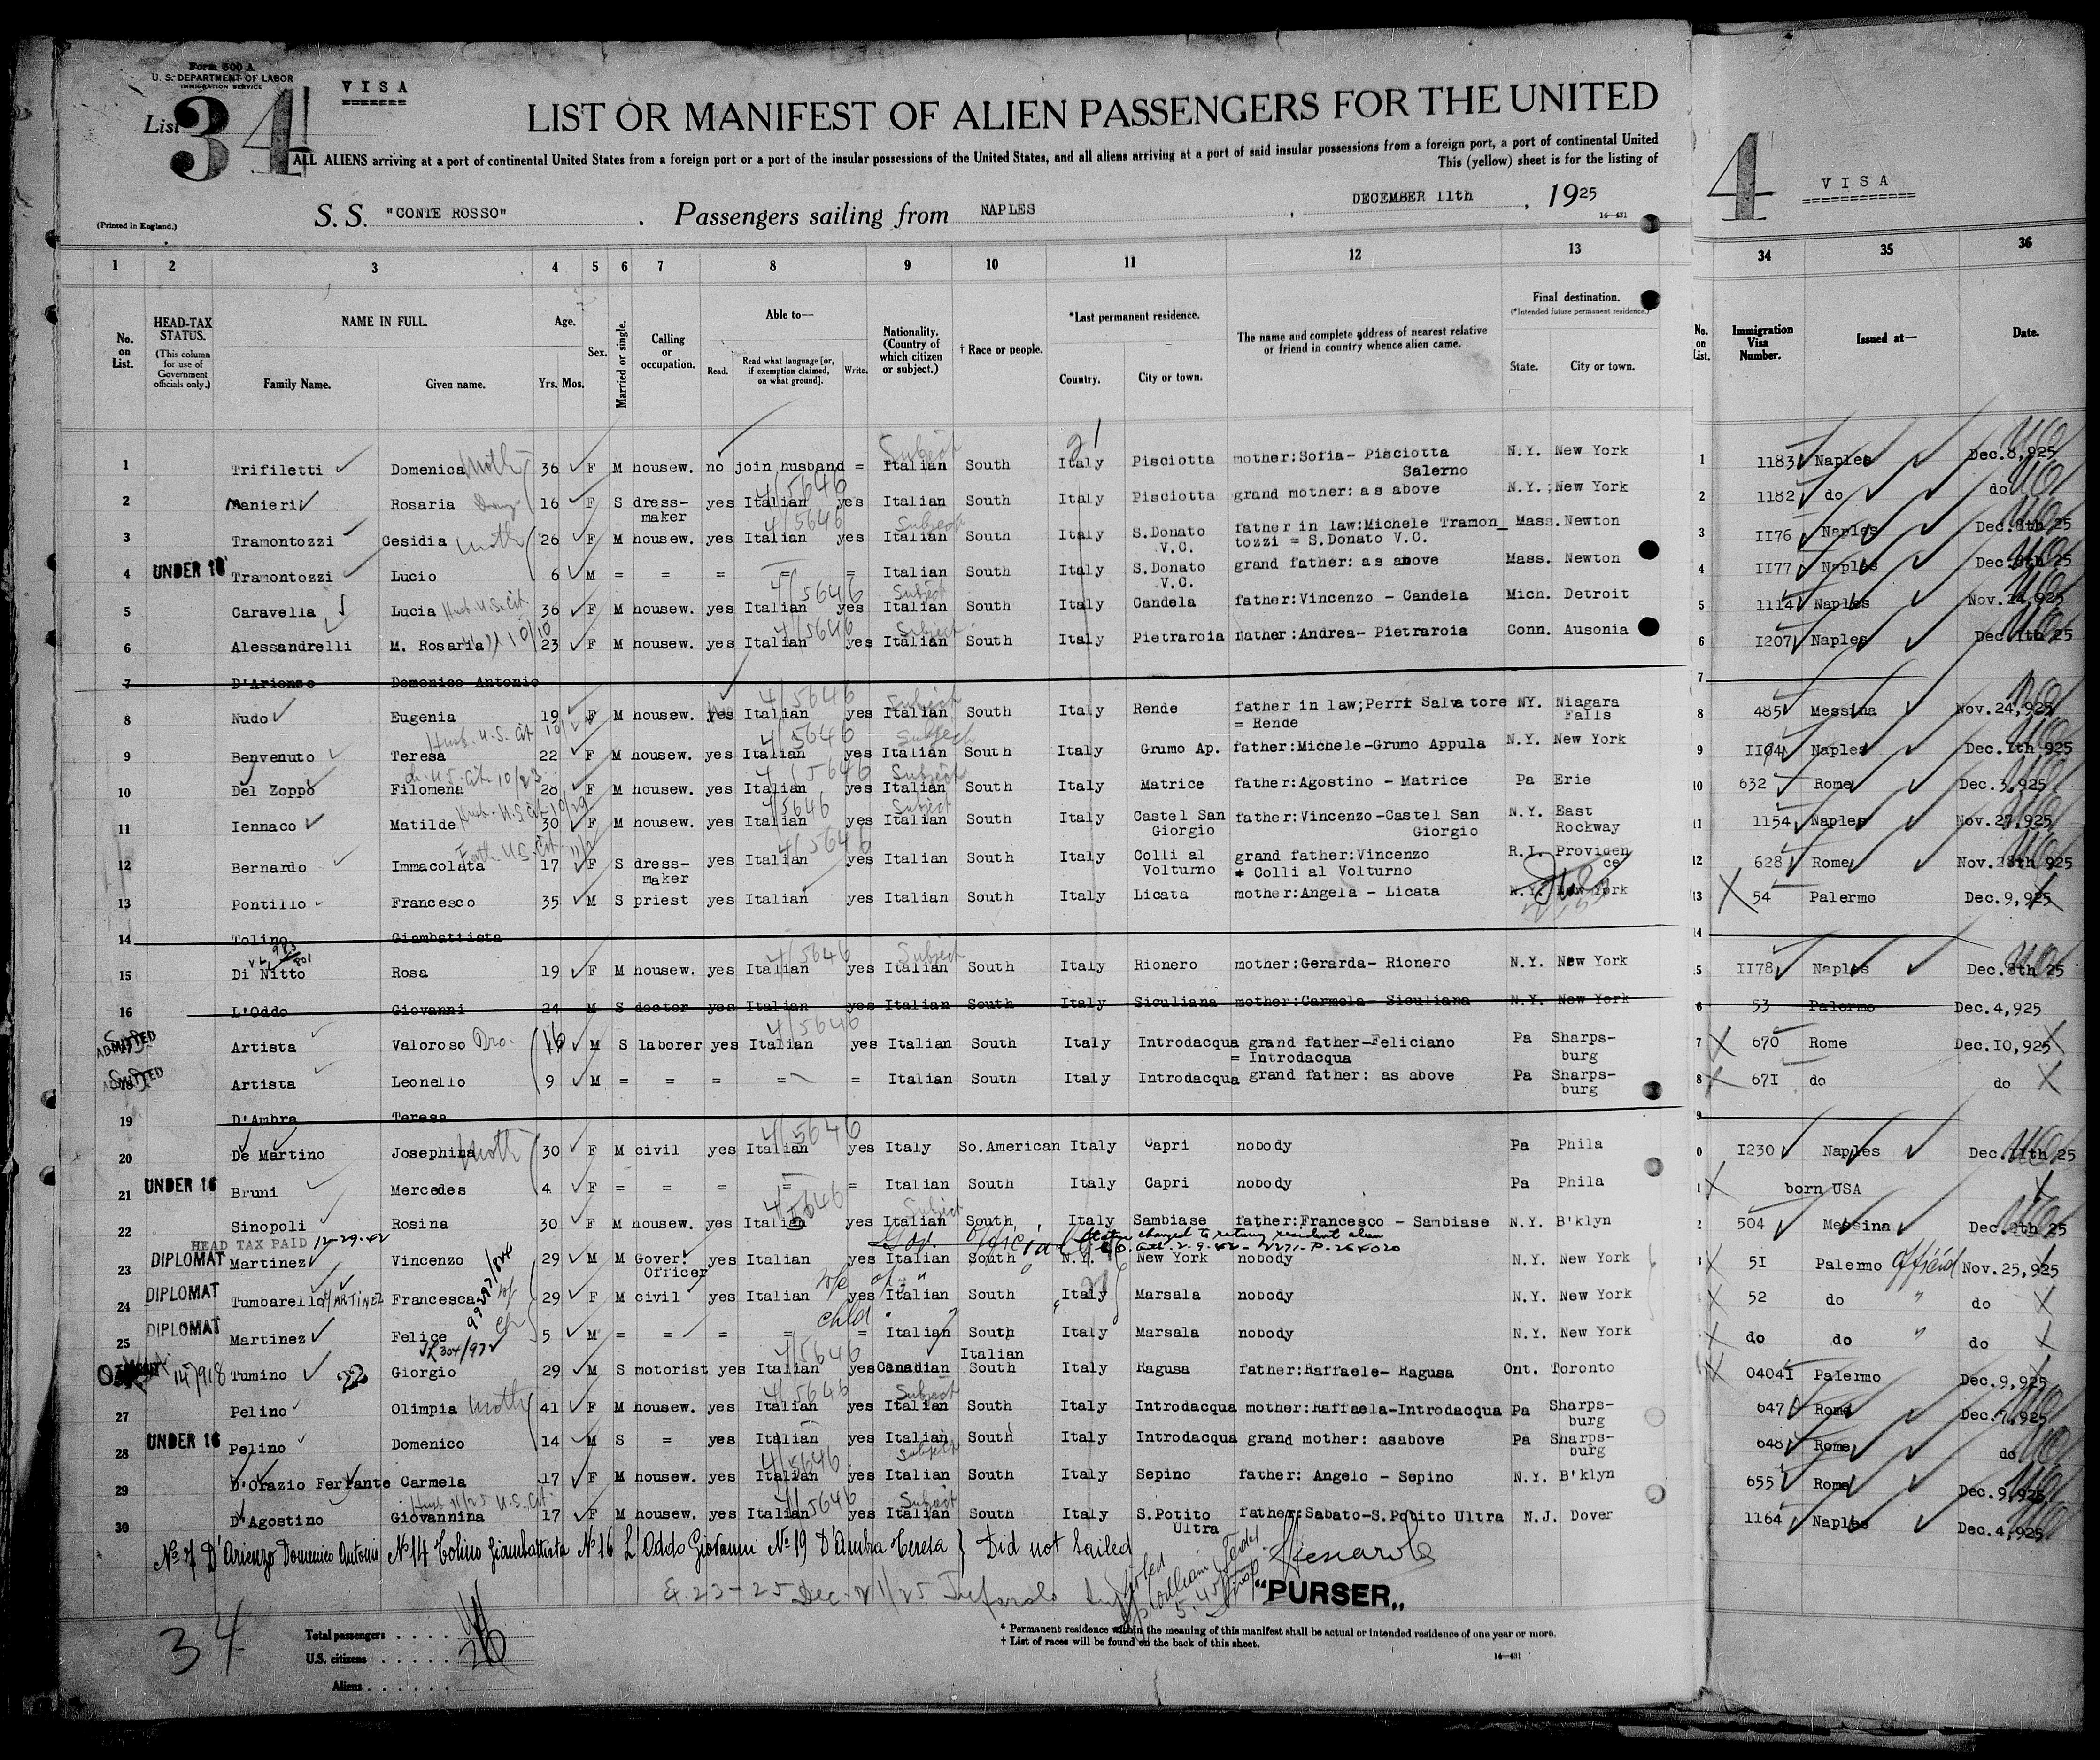 Form 500 A
U. S. DEPARTMENT OF LABOR
IMMIGRATION SERVICE
VISA
List 34
LIST OR MANIFEST OF ALIEN PASSENGERS FOR THE UNITED
ALL ALIENS arriving at a port of continental United States from a foreign port or a port of the insular possessions of the United States, and all aliens arriving at a port of said insular possessions from a foreign port, a port of continental United
This (yellow) sheet is for the listing of
4 VISA
(Printed in England.) S. S. "CONTE ROSSO" . Passengers sailing from NAPLES , DECEMBER 11th , 1925
14—431
1 2 3 4 5 6 7 8 9 10 11 12 13 34 35 36
No. on List. HEAD-TAX STATUS. (This column for use of Government officials only.) NAME IN FULL. Family Name. Given name. Age. Yrs. Mos. Sex. Married or single. Calling or occupation. Able to— Read. Read what language [or, if exemption claimed, on what ground]. Write. Nationality. (Country of which citizen or subject.) † Race or people. *Last permanent residence. Country. City or town. The name and complete address of nearest relative or friend in country whence alien came. Final destination. (*Intended future permanent residence.) State. City or town. No. on List. Immigration Visa Number. Issued at— Date.
1 Trifiletti Domenica Moth 36 F M housew. no join husband = Italian Subject South Italy Pisciotta mother:Sofia- Pisciotta Salerno N.Y. New York 1 1183 Naples Dec.8,925
2 Ranieri Rosaria 16 F S dress-maker yes Italian 4/5646 yes Italian South Italy Pisciotta grand mother: as above N.Y. New York 2 1182 do do
3 Tramontozzi Cesidia Moth 26 F M housew. yes Italian 4/5646 yes Italian Subject South Italy S.Donato V.C. father in law:Michele Tramon_tozzi = S.Donato V.C. Mass. Newton 3 1176 Naples Dec.8th 25
4 UNDER 16 Tramontozzi Lucio 6 M = = = = = Italian South Italy S.Donato V.C. grand father: as above Mass. Newton 4 1177 Naples Dec.8th 25
5 Caravella Lucia Husb. U.S. Cit. 36 F M housew. yes Italian 4/5646 yes Italian Subject South Italy Candela father:Vincenzo - Candela Mich. Detroit 5 1114 Naples Nov.24,925
6 Alessandrelli M. Rosaria 23 F M housew. yes Italian 4/5646 yes Italian Subject South Italy Pietraroia father:Andrea- Pietraroia Conn. Ausonia 6 1207 Naples Dec.1th 25
7 D'Arienzo Domenico Antonio 7
8 Nudo Eugenia 19 F M housew. yes Italian 4/5646 yes Italian Subject South Italy Rende father in law;Perri Salvatore = Rende NY. Niagara Falls 8 485 Messina Nov.24,925
9 Benvenuto Teresa Husb. U.S. Cit 22 F M housew. yes Italian 4/5646 yes Italian Subject South Italy Grumo Ap. father:Michele-Grumo Appula N.Y. New York 9 1194 Naples Dec.1th 925
10 Del Zoppo Filomena U.S. Cit 10/23 28 F M housew. yes Italian 4/5646 yes Italian Subject South Italy Matrice father:Agostino - Matrice Pa Erie 10 632 Rome Dec.3,925
11 Iennaco Matilde Husb. U.S. Cit 10/29 30 F M housew. yes Italian 4/5646 yes Italian Subject South Italy Castel San Giorgio father:Vincenzo-Castel San Giorgio N.Y. East Rockway 11 1154 Naples Nov.27,925
12 Bernardo Immacolata Fath. U.S. Cit. 17 F S dress-maker yes Italian 4/5646 yes Italian South Italy Colli al Volturno grand father:Vincenzo = Colli al Volturno R.I. Providence 12 628 Rome Nov.28th 925
13 Pontillo Francesco 35 M S priest yes Italian yes Italian South Italy Licata mother:Angela - Licata N.Y. New York 13 54 Palermo Dec.9,925
14 Tolino Giambattista 14
15 Di Nitto Rosa 19 F M housew. yes Italian 4/5646 yes Italian Subject South Italy Rionero mother:Gerarda- Rionero N.Y. New York 5 1178 Naples Dec.8th 25
16 L'Oddo Giovanni 24 M S doctor yes Italian yes Italian South Italy Siculiana mother:Carmela- Siculiana N.Y. New York 6 53 Palermo Dec.4,925
ADMITTED Artista Valoroso Bro. 16 M S laborer yes Italian 4/5646 yes Italian South Italy Introdacqua grand father-Feliciano = Introdacqua Pa Sharps-burg 7 670 Rome Dec.10,925
ADMITTED Artista Leonello 9 M = = = = = Italian South Italy Introdacqua grand father: as above Pa Sharps-burg 8 671 do do
19 D'Ambra Teresa 9
20 De Martino Josephina Moth 30 F M civil yes Italian 4/5646 yes Italy So.American Italy Capri nobody Pa Phila 0 1230 Naples Dec.11th 25
21 UNDER 16 Bruni Mercedes 4 F = = = = = Italian South Italy Capri nobody Pa Phila 1 born USA
22 Sinopoli Rosina 30 F M housew. yes Italian 4/5646 yes Italian Subject South Italy Sambiase father:Francesco - Sambiase N.Y. B'klyn 2 504 Messina Dec.9th 25
HEAD TAX PAID 12-29-42 Gov. Official Status changed to returning resident alien
23 DIPLOMAT Martinez Vincenzo 29 M M Gover. Officer yes Italian yes Italian South N.Y. New York nobody N.Y. New York 3 51 Palermo Official Nov.25,925
24 DIPLOMAT Tumbarello MARTINEZ Francesca 29 F M civil yes Italian wife of " yes Italian South Italy Marsala nobody N.Y. New York 52 do " do
25 DIPLOMAT Martinez Felice 5 M = = = = child Italian South Italy Marsala nobody N.Y. New York do do " do
Tumino Giorgio 29 M S motorist yes Italian 4/5646 yes Canadian Italian South Italy Ragusa father:Raffaele- Ragusa Ont. Toronto 04041 Palermo Dec.9,925
27 Pelino Olimpia Moth 41 F M housew. yes Italian 4/5646 yes Italian Subject South Italy Introdacqua mother:Raffaela-Introdacqua Pa Sharps-burg 647 Rome Dec.7,925
28 UNDER 16 Pelino Domenico 14 M S = yes Italian yes Italian South Italy Introdacqua grand mother: asabove Pa Sharps-burg 648 Rome do
29 D'Orazio Ferrante Carmela 17 F M housew. yes Italian 4/5646 yes Italian Subject South Italy Sepino father: Angelo - Sepino N.Y. B'klyn 655 Rome Dec.9,925
30 D'Agostino Giovannina Husb 11/25 U.S. Cit. 17 F M housew. yes Italian 4/5646 yes Italian Subject South Italy S.Potito Ultra father:Sabato-S.Potito Ultra N.J. Dover 1164 Naples Dec.4,925
No 7 D'Arienzo Domenico Antonio No 14 Tolino Giambattista No 16 L'Oddo Giovanni No 19 D'Ambra Teresa } Did not sailed
"PURSER„
34
Total passengers . . . .
U.S. citizens . . . . .
Aliens . . . . . .
* Permanent residence within the meaning of this manifest shall be actual or intended residence of one year or more.
† List of races will be found on the back of this sheet.
14—431